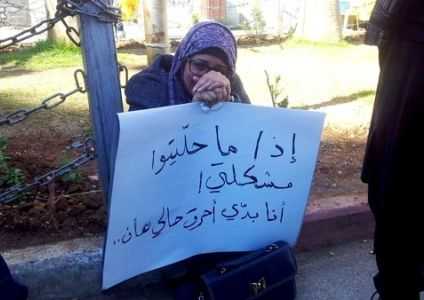 إذا ما حلّيتوا
مشكلتي!
أنا بدّي أحرق حالي هان..